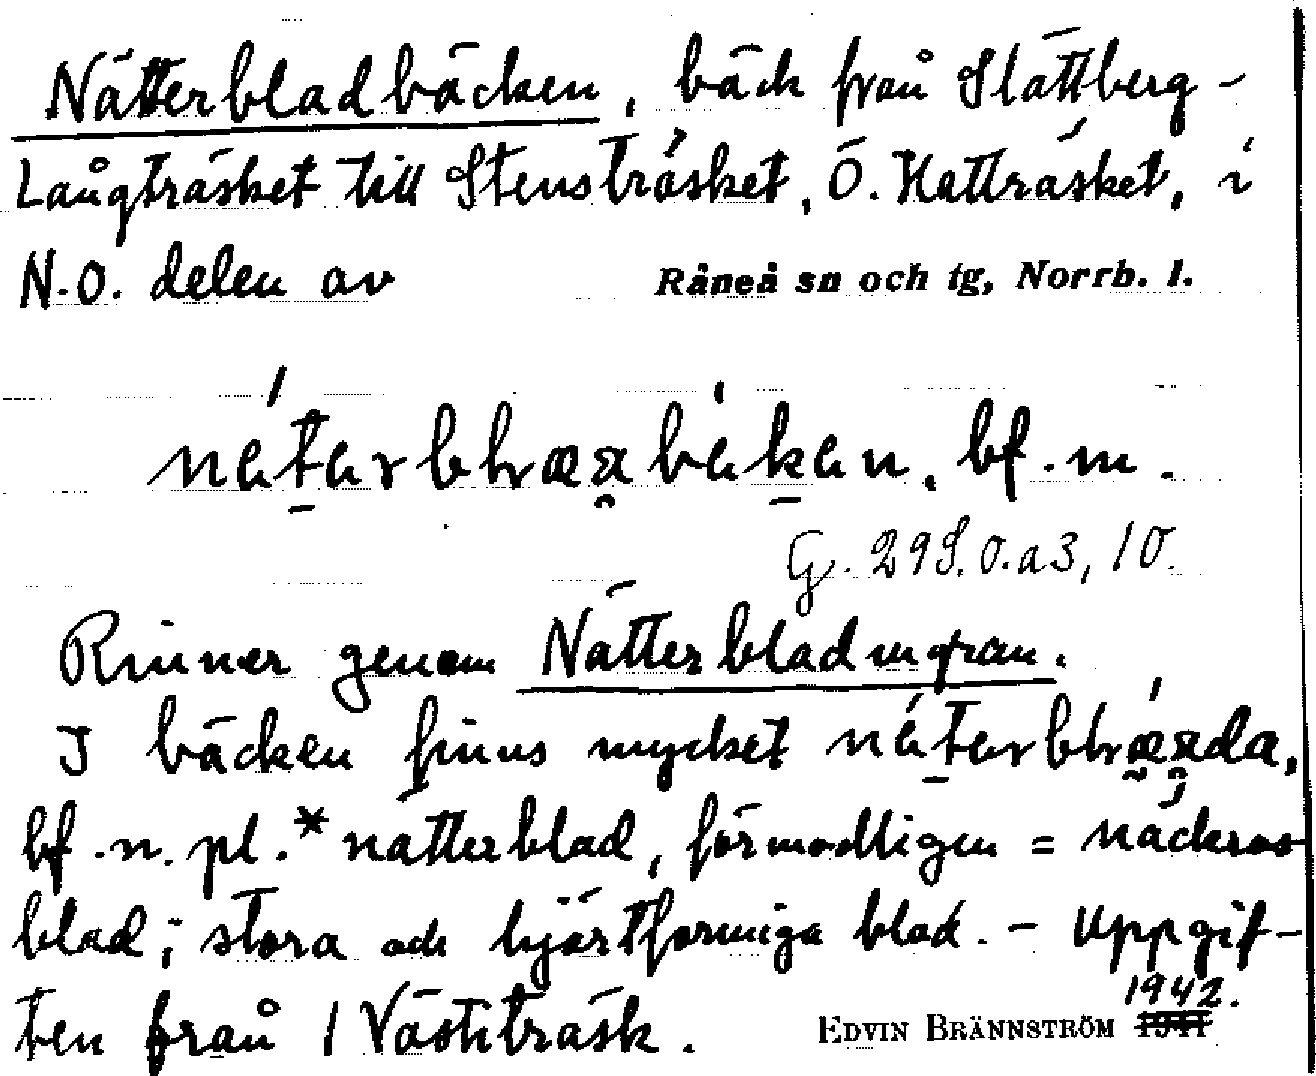 Nätterbladbäcken, bäck från Slättberg-
Långträsket till Stensträsket, Ö. Hatträsket, i
N.O. delen av Råneå sn och tg, Norrb. l.
bf. m.
G. 29S.O.a3,10.
Rinner genom Nätterbladmyran.
I bäcken finns mycket
bf. n. pl. *natterblad, förmodligen = näckros-
blad; stora och hjärtformiga blad. - Uppgif-
ten från 1 Västiträsk.
EDVIN BRÄNNSTRÖM 1941 1942.